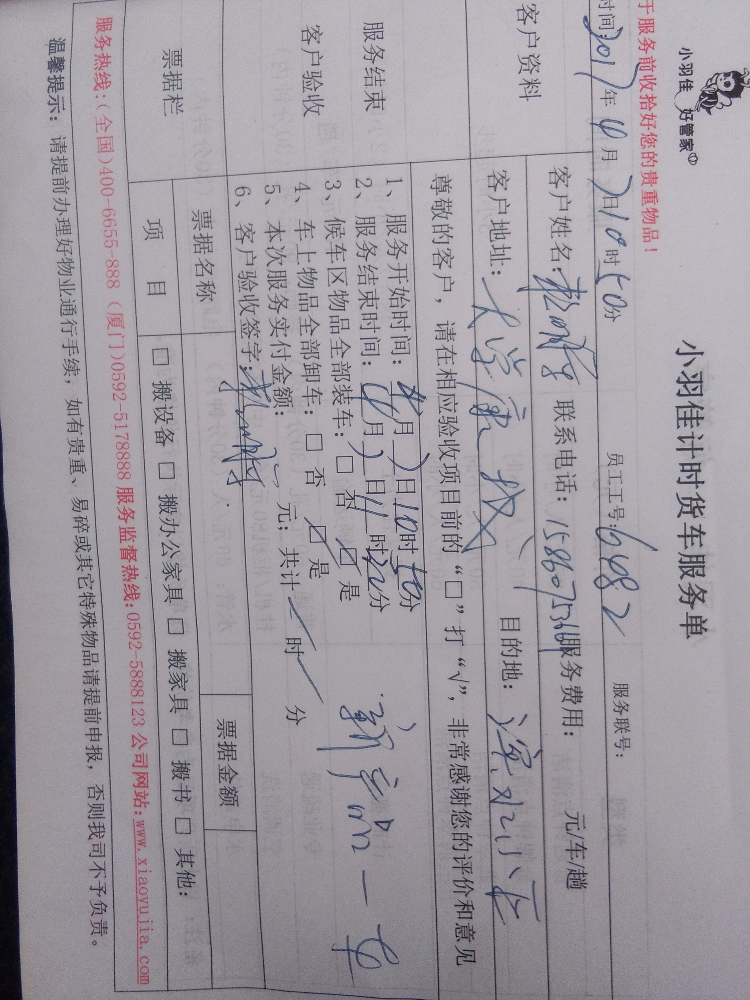 小羽佳 好管家
小羽佳计时货车服务单
于服务前收拾好您的贵重物品！
员工工号：6482 服务联号：
时间：2017年4月2日10时50分
客户资料
客户姓名： 联系电话： 服务费用： 元/车/趟
客户地址： 目的地：
尊敬的客户，请在相应验收项目前的“□”打“√”，非常感谢您的评价和意见
服务结束
客户验收
1、服务开始时间：4月2日10时50分
2、服务结束时间：4月2日11时22分
3、候车区物品全部装车：□ 否 ☑ 是
4、车上物品全部卸车：□ 否 ☑ 是
5、本次服务实付金额： 元；共计 时 分
6、客户验收签字：
票据栏
票据名称 票据金额
项 目 □ 搬设备 □ 搬办公家具 □ 搬家具 □ 搬书 □ 其他：
服务热线：(全国)400-6655-888 (厦门)0592-5178888 服务监督热线：0592-5888123 公司网站：www.xiaoyujia.com
温馨提示：请提前办理好物业通行手续，如有贵重、易碎或其它特殊物品请提前申报，否则我司不予负责。